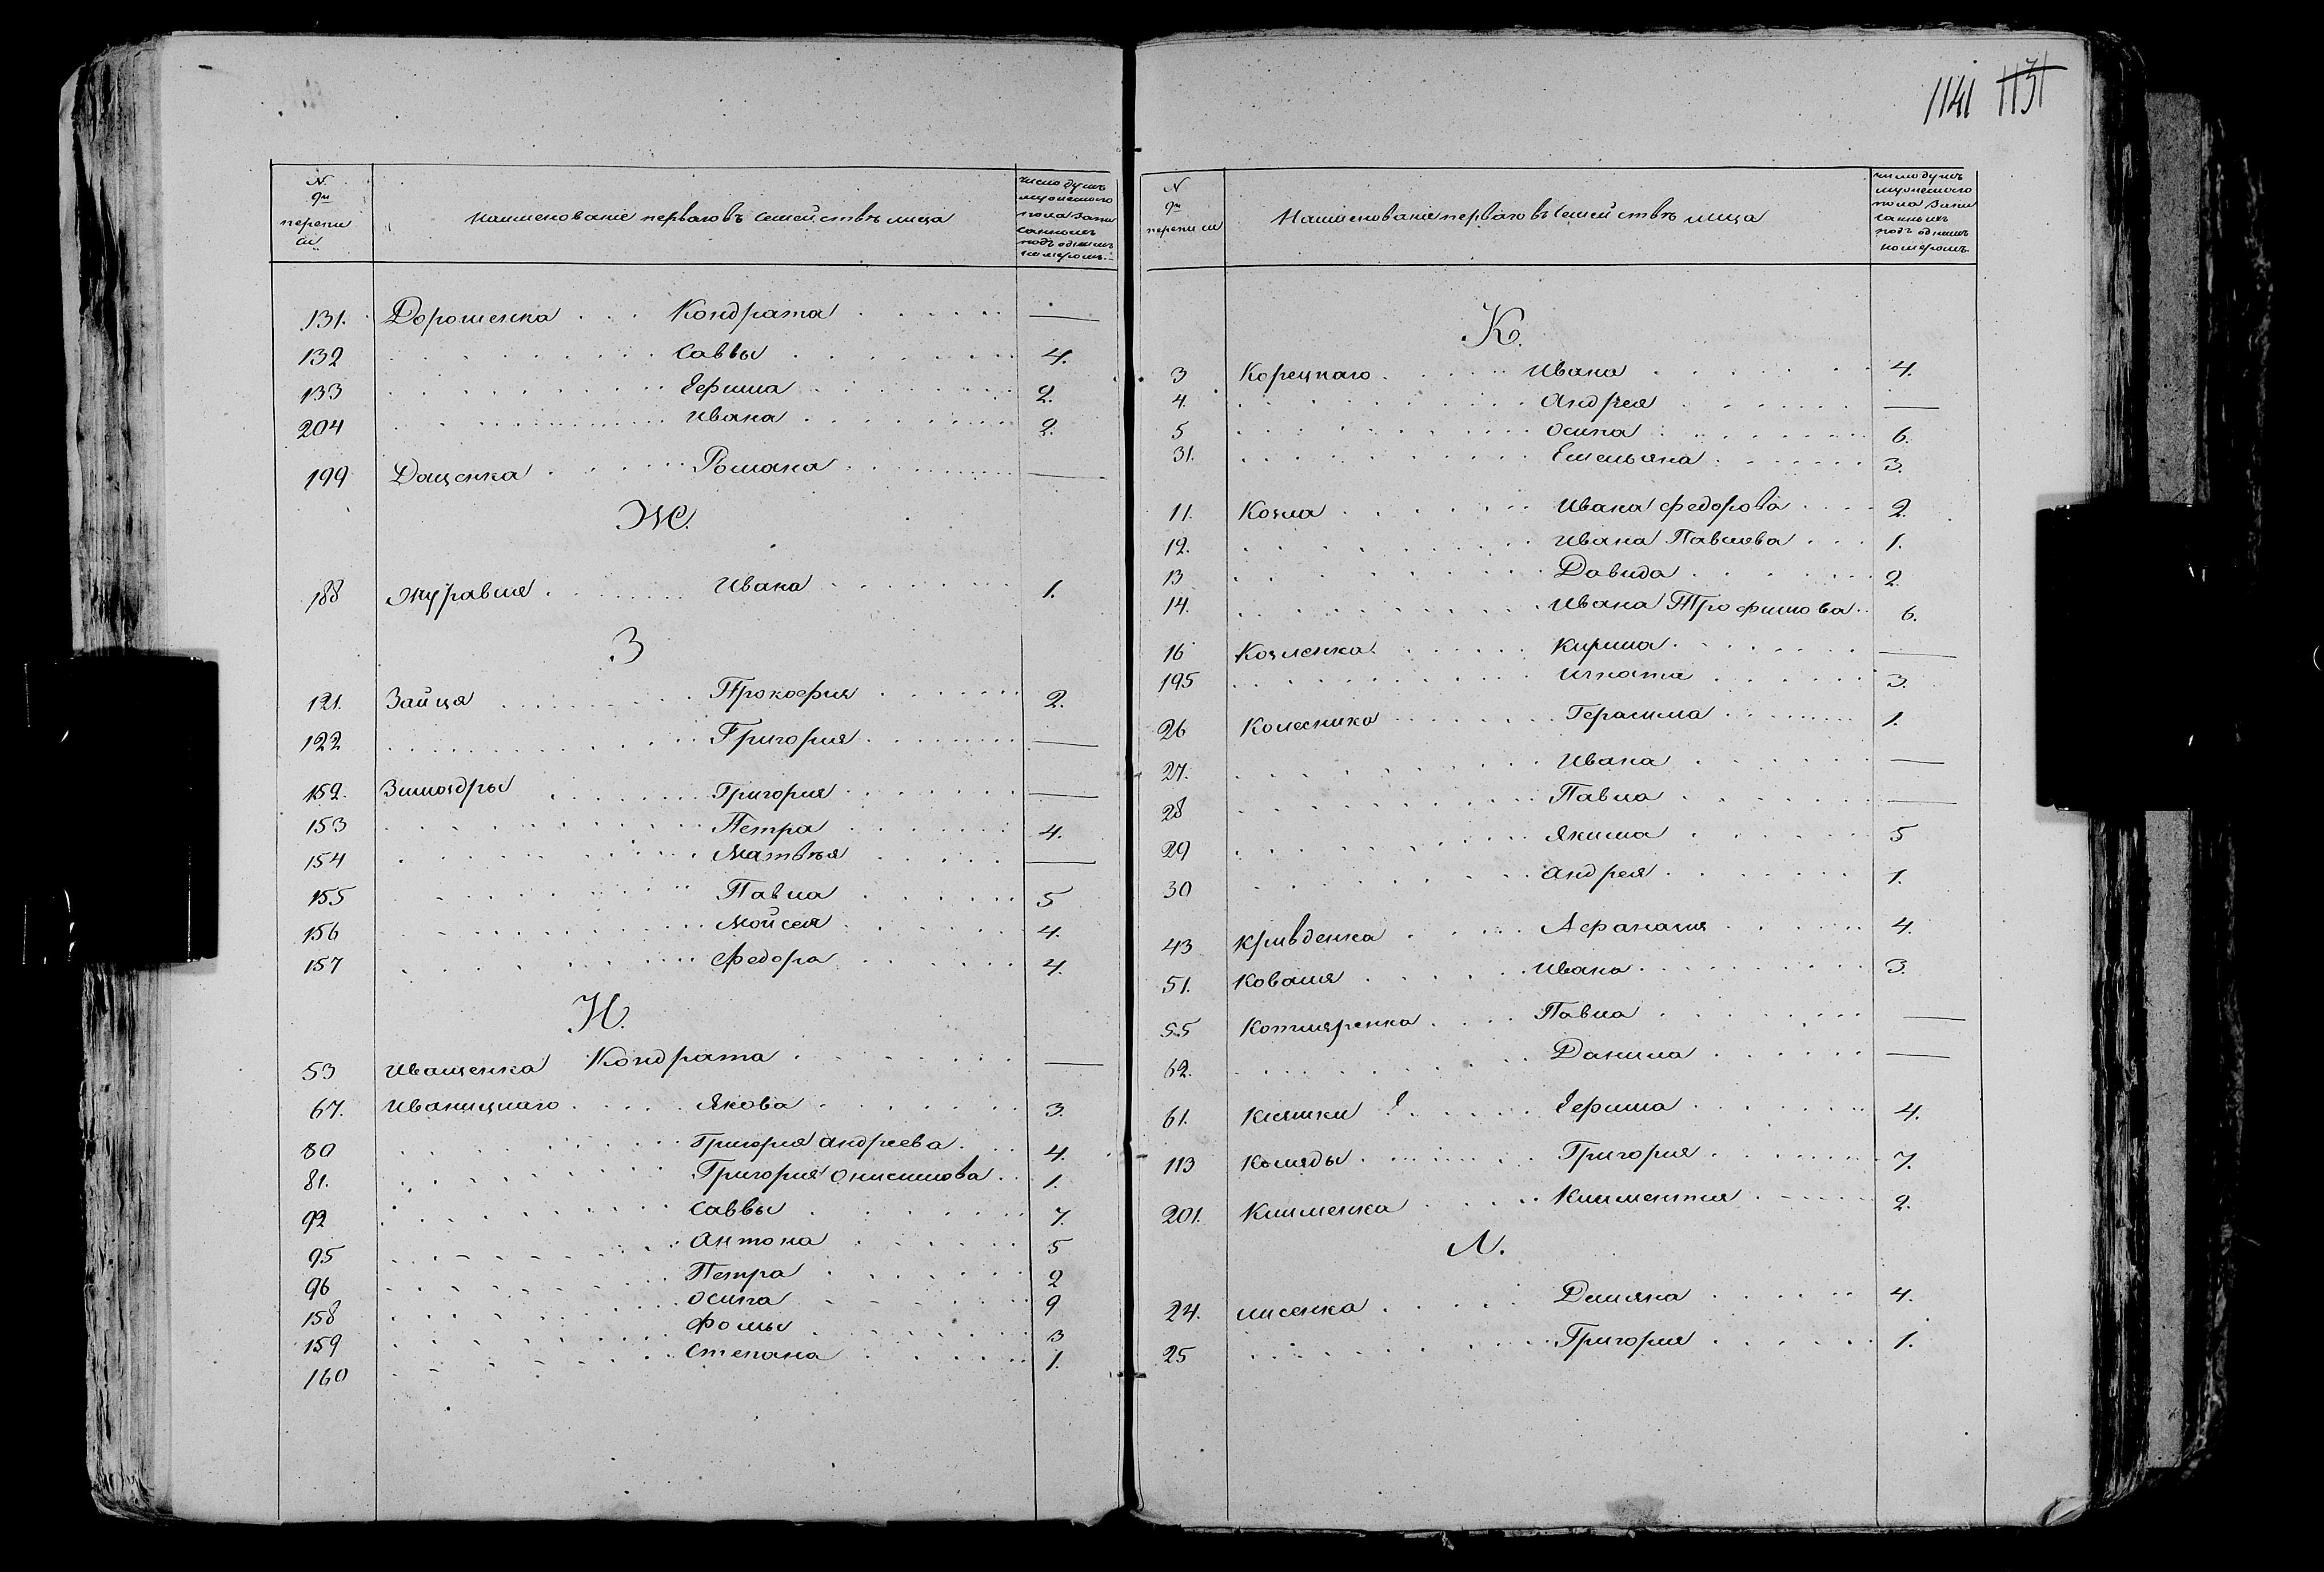 1141 1131
N. 9й переписи
Наименованіе перваго въ семействѣ лица
Число душъ мужескаго пола записанныхъ подъ однимъ номеромъ.
131. Дорошенка . . . Кондрата . . . —
132 . . . Саввы . . . 4.
133 . . . Ефима . . . 2.
204 . . . Ивана . . . 2.
199 Даценка . . . Романа . . . —
Ж.
188 Журавля . . . Ивана . . . 1.
З
121. Зайця . . . Прокофія . . . 2.
122 . . . Григорія . . . —
152. . . . Григорія . . . —
153 . . . Петра . . . 4.
154 . . . Матвѣя . . . —
155 . . . Павла . . . 5
156 . . . Мойсея . . . 4.
157 . . . Федора . . . 4.
И.
53 Иващенка Кондрата . . . —
67. Иваницкаго . . . Якова . . . 3.
80 . . . Григорія Андреева . . . 4.
81. . . . Григорія Онисимова . . 1.
92 . . . Саввы . . . 7.
95 . . . Антона . . . 5
96 . . . Петра . . . 2
158 . . . Осипа . . . 9
159 . . . Фомы . . . 3
160 . . . Степана . . . 1.
N 9й переписи
Наименованіе перваго въ семействѣ лица
Число душъ мужескаго пола записанныхъ подъ однимъ номеромъ.
К.
3 Корецкаго . . . Ивана . . . 4.
4. . . . Андрея . . . —
5 . . . Осипа . . . 6.
31. . . . Емельяна . . . 3.
11. Козла . . . Ивана Федорова . . . 2.
12. . . . Ивана Павлова . . . 1.
13 . . . Давида . . . 2
14. . . . Ивана Трофимова . . 6.
16 Козленка . . . Кирила . . . —
195 . . . Игната . . . 3.
26 Колесника . . . Герасима . . . 1.
27. . . . Ивана . . . —
28 . . . Павла . . . —
29 . . . Якима . . . 5
30 . . . Андрея . . . 1.
43 Кривденка . . . Афанасія . . . 4.
51. Коваля . . . Ивана . . . 3.
55 Котляренка . . . Павла . . . —
62. . . . Данила . . . —
61. Кляшки . . . Ефима . . . 4.
113 Коляды . . . Григорія . . . 7.
201. Клименка . . . Климентія . . . 2.
Л.
24. Лисенка . . . Демяна . . . 4.
25 . . . Григорія . . . 1.